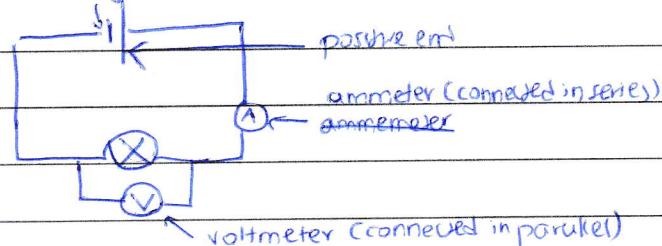 positive end
ammeter (connected in series)
A
ammemeter
V
voltmeter (connected in parallel)